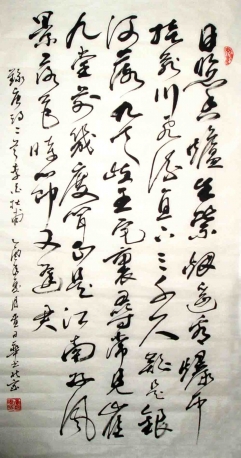 日照香爐生紫烟遙看瀑布
挂前川飛流直下三千尺疑是銀
河落九天岐王宅裏尋常見崔
九堂前幾度聞正是江南好風
景落花時節又逢君
錄唐詩二首李白杜甫 乙酉年夏月